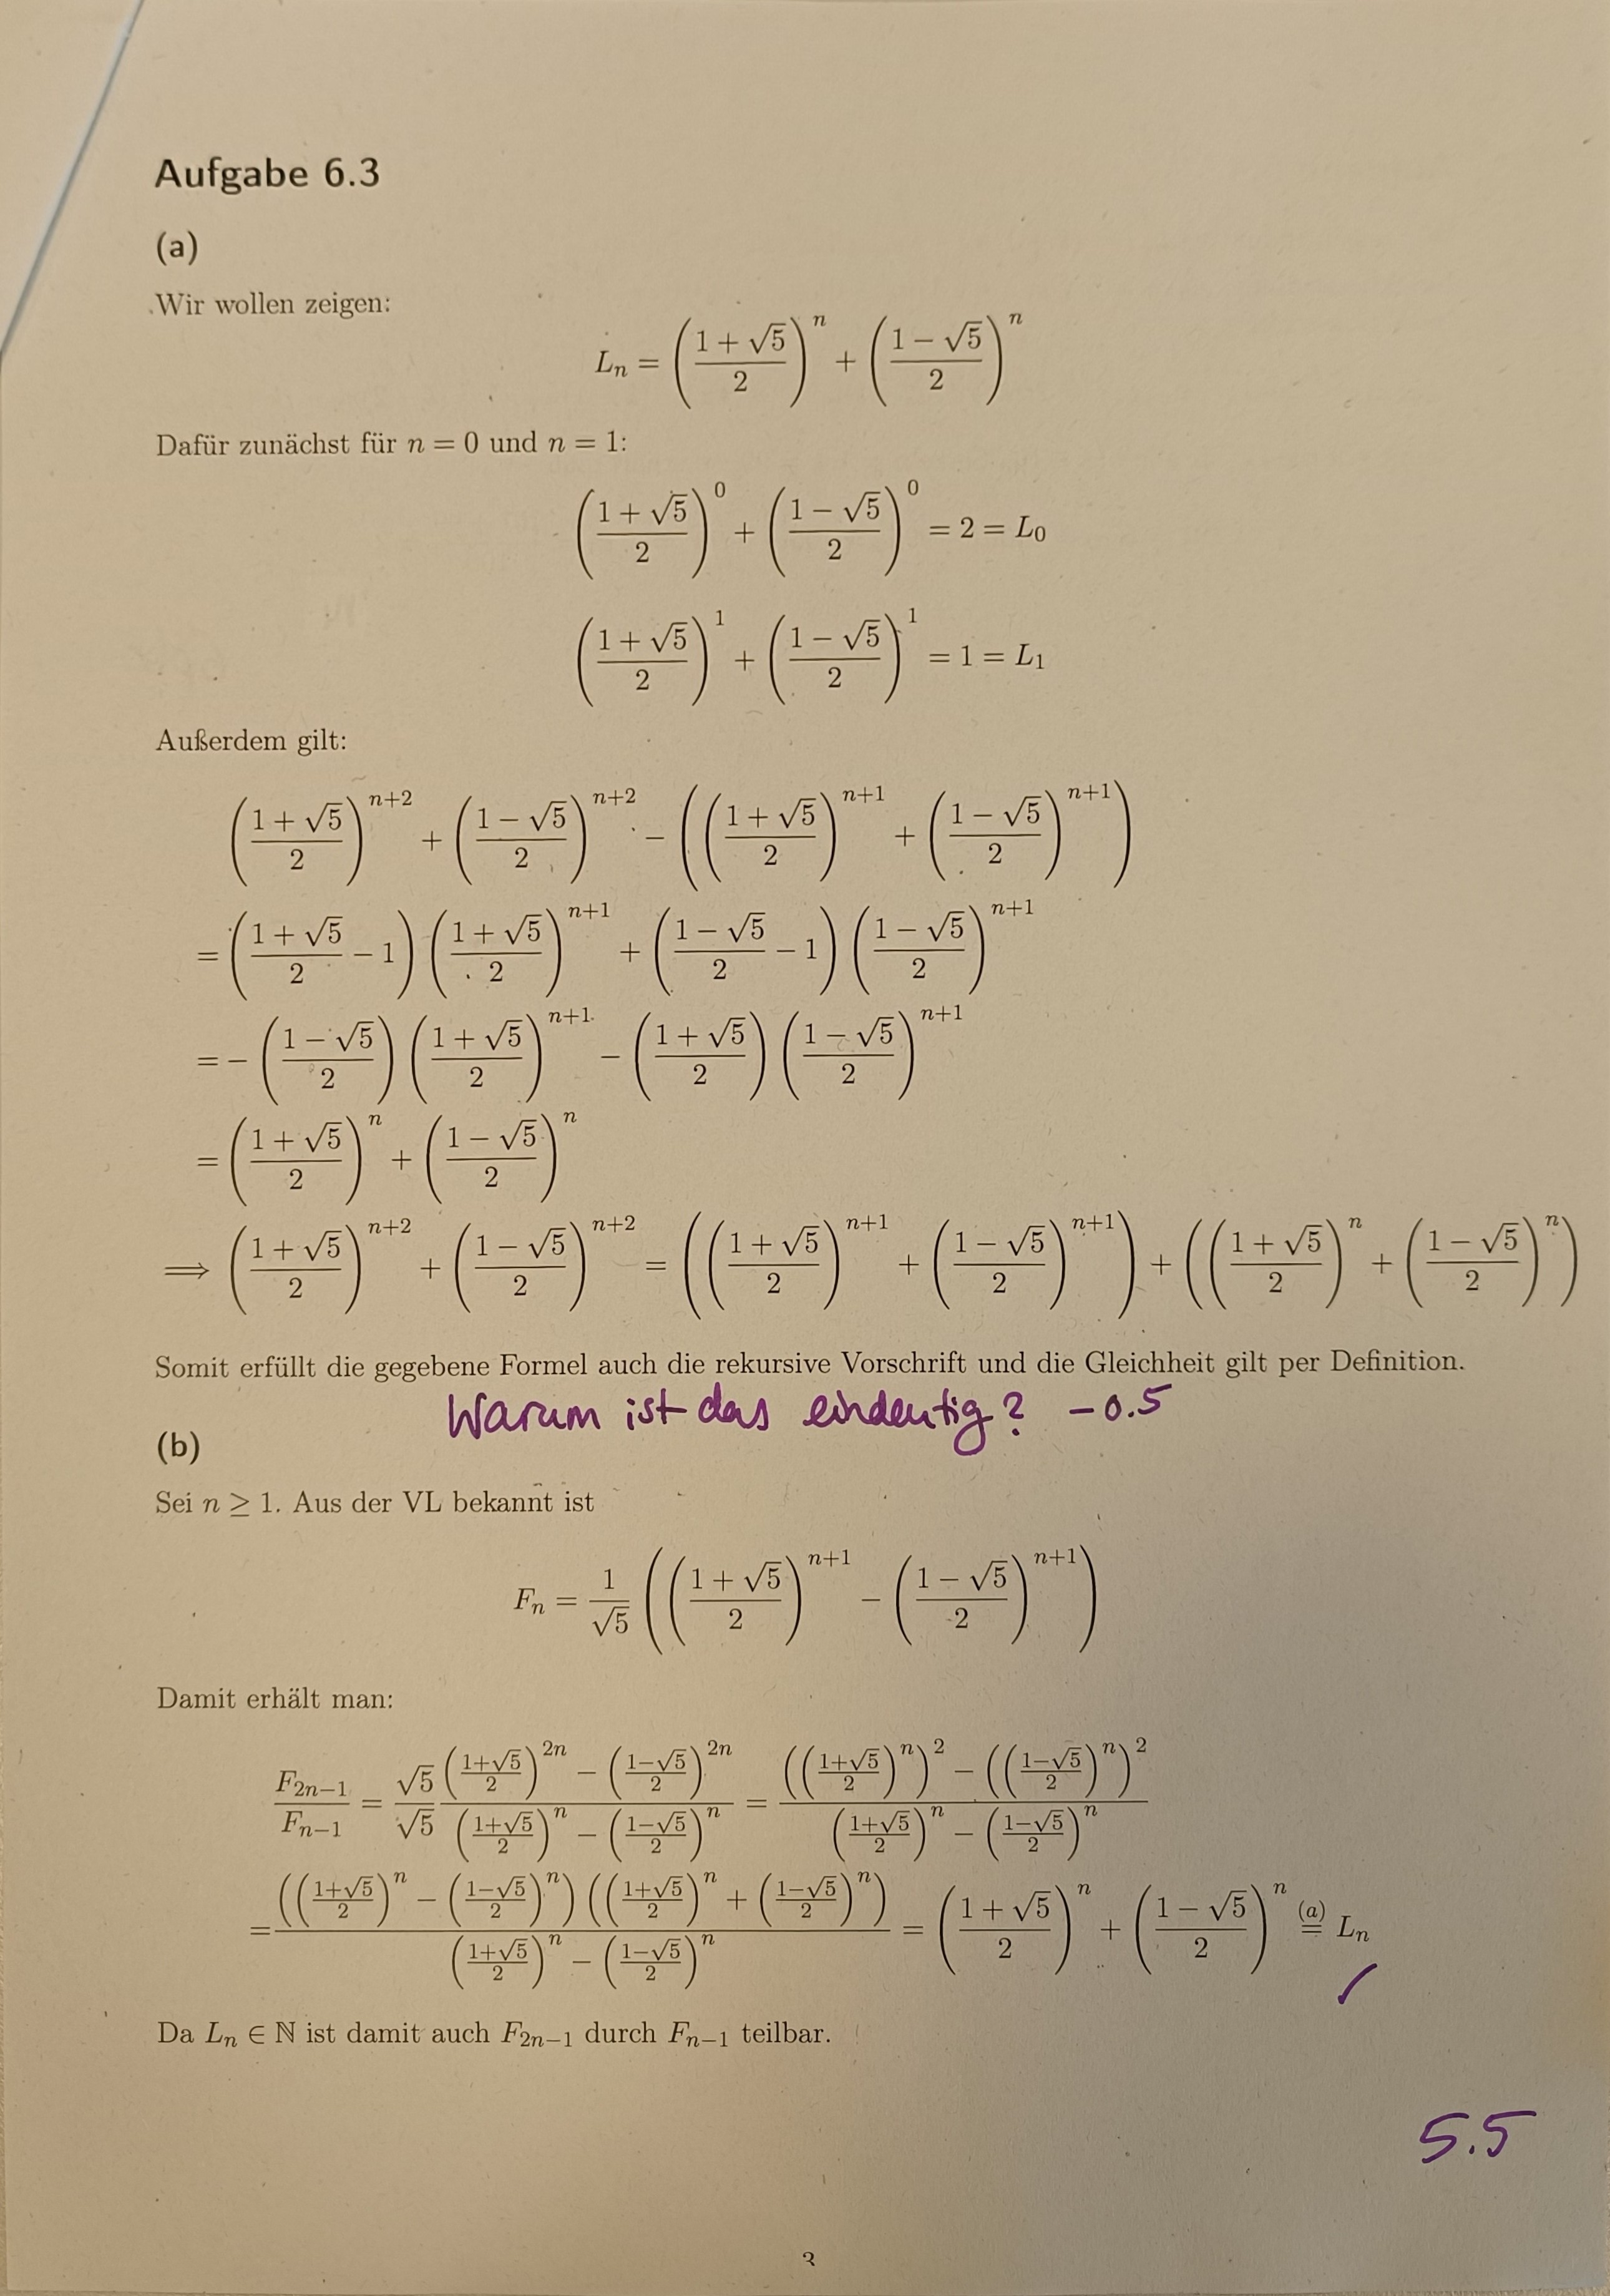 Aufgabe 6.3
(a)
Wir wollen zeigen:
$L_n = \left(\frac{1+\sqrt{5}}{2}\right)^n + \left(\frac{1-\sqrt{5}}{2}\right)^n$
Dafür zunächst für $n = 0$ und $n = 1$:
$\left(\frac{1+\sqrt{5}}{2}\right)^0 + \left(\frac{1-\sqrt{5}}{2}\right)^0 = 2 = L_0$
$\left(\frac{1+\sqrt{5}}{2}\right)^1 + \left(\frac{1-\sqrt{5}}{2}\right)^1 = 1 = L_1$
Außerdem gilt:
$\left(\frac{1+\sqrt{5}}{2}\right)^{n+2} + \left(\frac{1-\sqrt{5}}{2}\right)^{n+2} - \left(\left(\frac{1+\sqrt{5}}{2}\right)^{n+1} + \left(\frac{1-\sqrt{5}}{2}\right)^{n+1}\right)$
$= \left(\frac{1+\sqrt{5}}{2} - 1\right)\left(\frac{1+\sqrt{5}}{2}\right)^{n+1} + \left(\frac{1-\sqrt{5}}{2} - 1\right)\left(\frac{1-\sqrt{5}}{2}\right)^{n+1}$
$= -\left(\frac{1-\sqrt{5}}{2}\right)\left(\frac{1+\sqrt{5}}{2}\right)^{n+1} - \left(\frac{1+\sqrt{5}}{2}\right)\left(\frac{1-\sqrt{5}}{2}\right)^{n+1}$
$= \left(\frac{1+\sqrt{5}}{2}\right)^n + \left(\frac{1-\sqrt{5}}{2}\right)^n$
$\Longrightarrow \left(\frac{1+\sqrt{5}}{2}\right)^{n+2} + \left(\frac{1-\sqrt{5}}{2}\right)^{n+2} = \left(\left(\frac{1+\sqrt{5}}{2}\right)^{n+1} + \left(\frac{1-\sqrt{5}}{2}\right)^{n+1}\right) + \left(\left(\frac{1+\sqrt{5}}{2}\right)^n + \left(\frac{1-\sqrt{5}}{2}\right)^n\right)$
Somit erfüllt die gegebene Formel auch die rekursive Vorschrift und die Gleichheit gilt per Definition.
Warum ist das eindeutig? -0.5
(b)
Sei $n \geq 1$. Aus der VL bekannt ist
$F_n = \frac{1}{\sqrt{5}}\left(\left(\frac{1+\sqrt{5}}{2}\right)^{n+1} - \left(\frac{1-\sqrt{5}}{2}\right)^{n+1}\right)$
Damit erhält man:
$\frac{F_{2n-1}}{F_{n-1}} = \frac{\sqrt{5}}{\sqrt{5}} \frac{\left(\frac{1+\sqrt{5}}{2}\right)^{2n} - \left(\frac{1-\sqrt{5}}{2}\right)^{2n}}{\left(\frac{1+\sqrt{5}}{2}\right)^n - \left(\frac{1-\sqrt{5}}{2}\right)^n} = \frac{\left(\left(\frac{1+\sqrt{5}}{2}\right)^n\right)^2 - \left(\left(\frac{1-\sqrt{5}}{2}\right)^n\right)^2}{\left(\frac{1+\sqrt{5}}{2}\right)^n - \left(\frac{1-\sqrt{5}}{2}\right)^n}$
$= \frac{\left(\left(\frac{1+\sqrt{5}}{2}\right)^n - \left(\frac{1-\sqrt{5}}{2}\right)^n\right)\left(\left(\frac{1+\sqrt{5}}{2}\right)^n + \left(\frac{1-\sqrt{5}}{2}\right)^n\right)}{\left(\frac{1+\sqrt{5}}{2}\right)^n - \left(\frac{1-\sqrt{5}}{2}\right)^n} = \left(\frac{1+\sqrt{5}}{2}\right)^n + \left(\frac{1-\sqrt{5}}{2}\right)^n \stackrel{(a)}{=} L_n$
Da $L_n \in \mathbb{N}$ ist damit auch $F_{2n-1}$ durch $F_{n-1}$ teilbar.
5.5
3